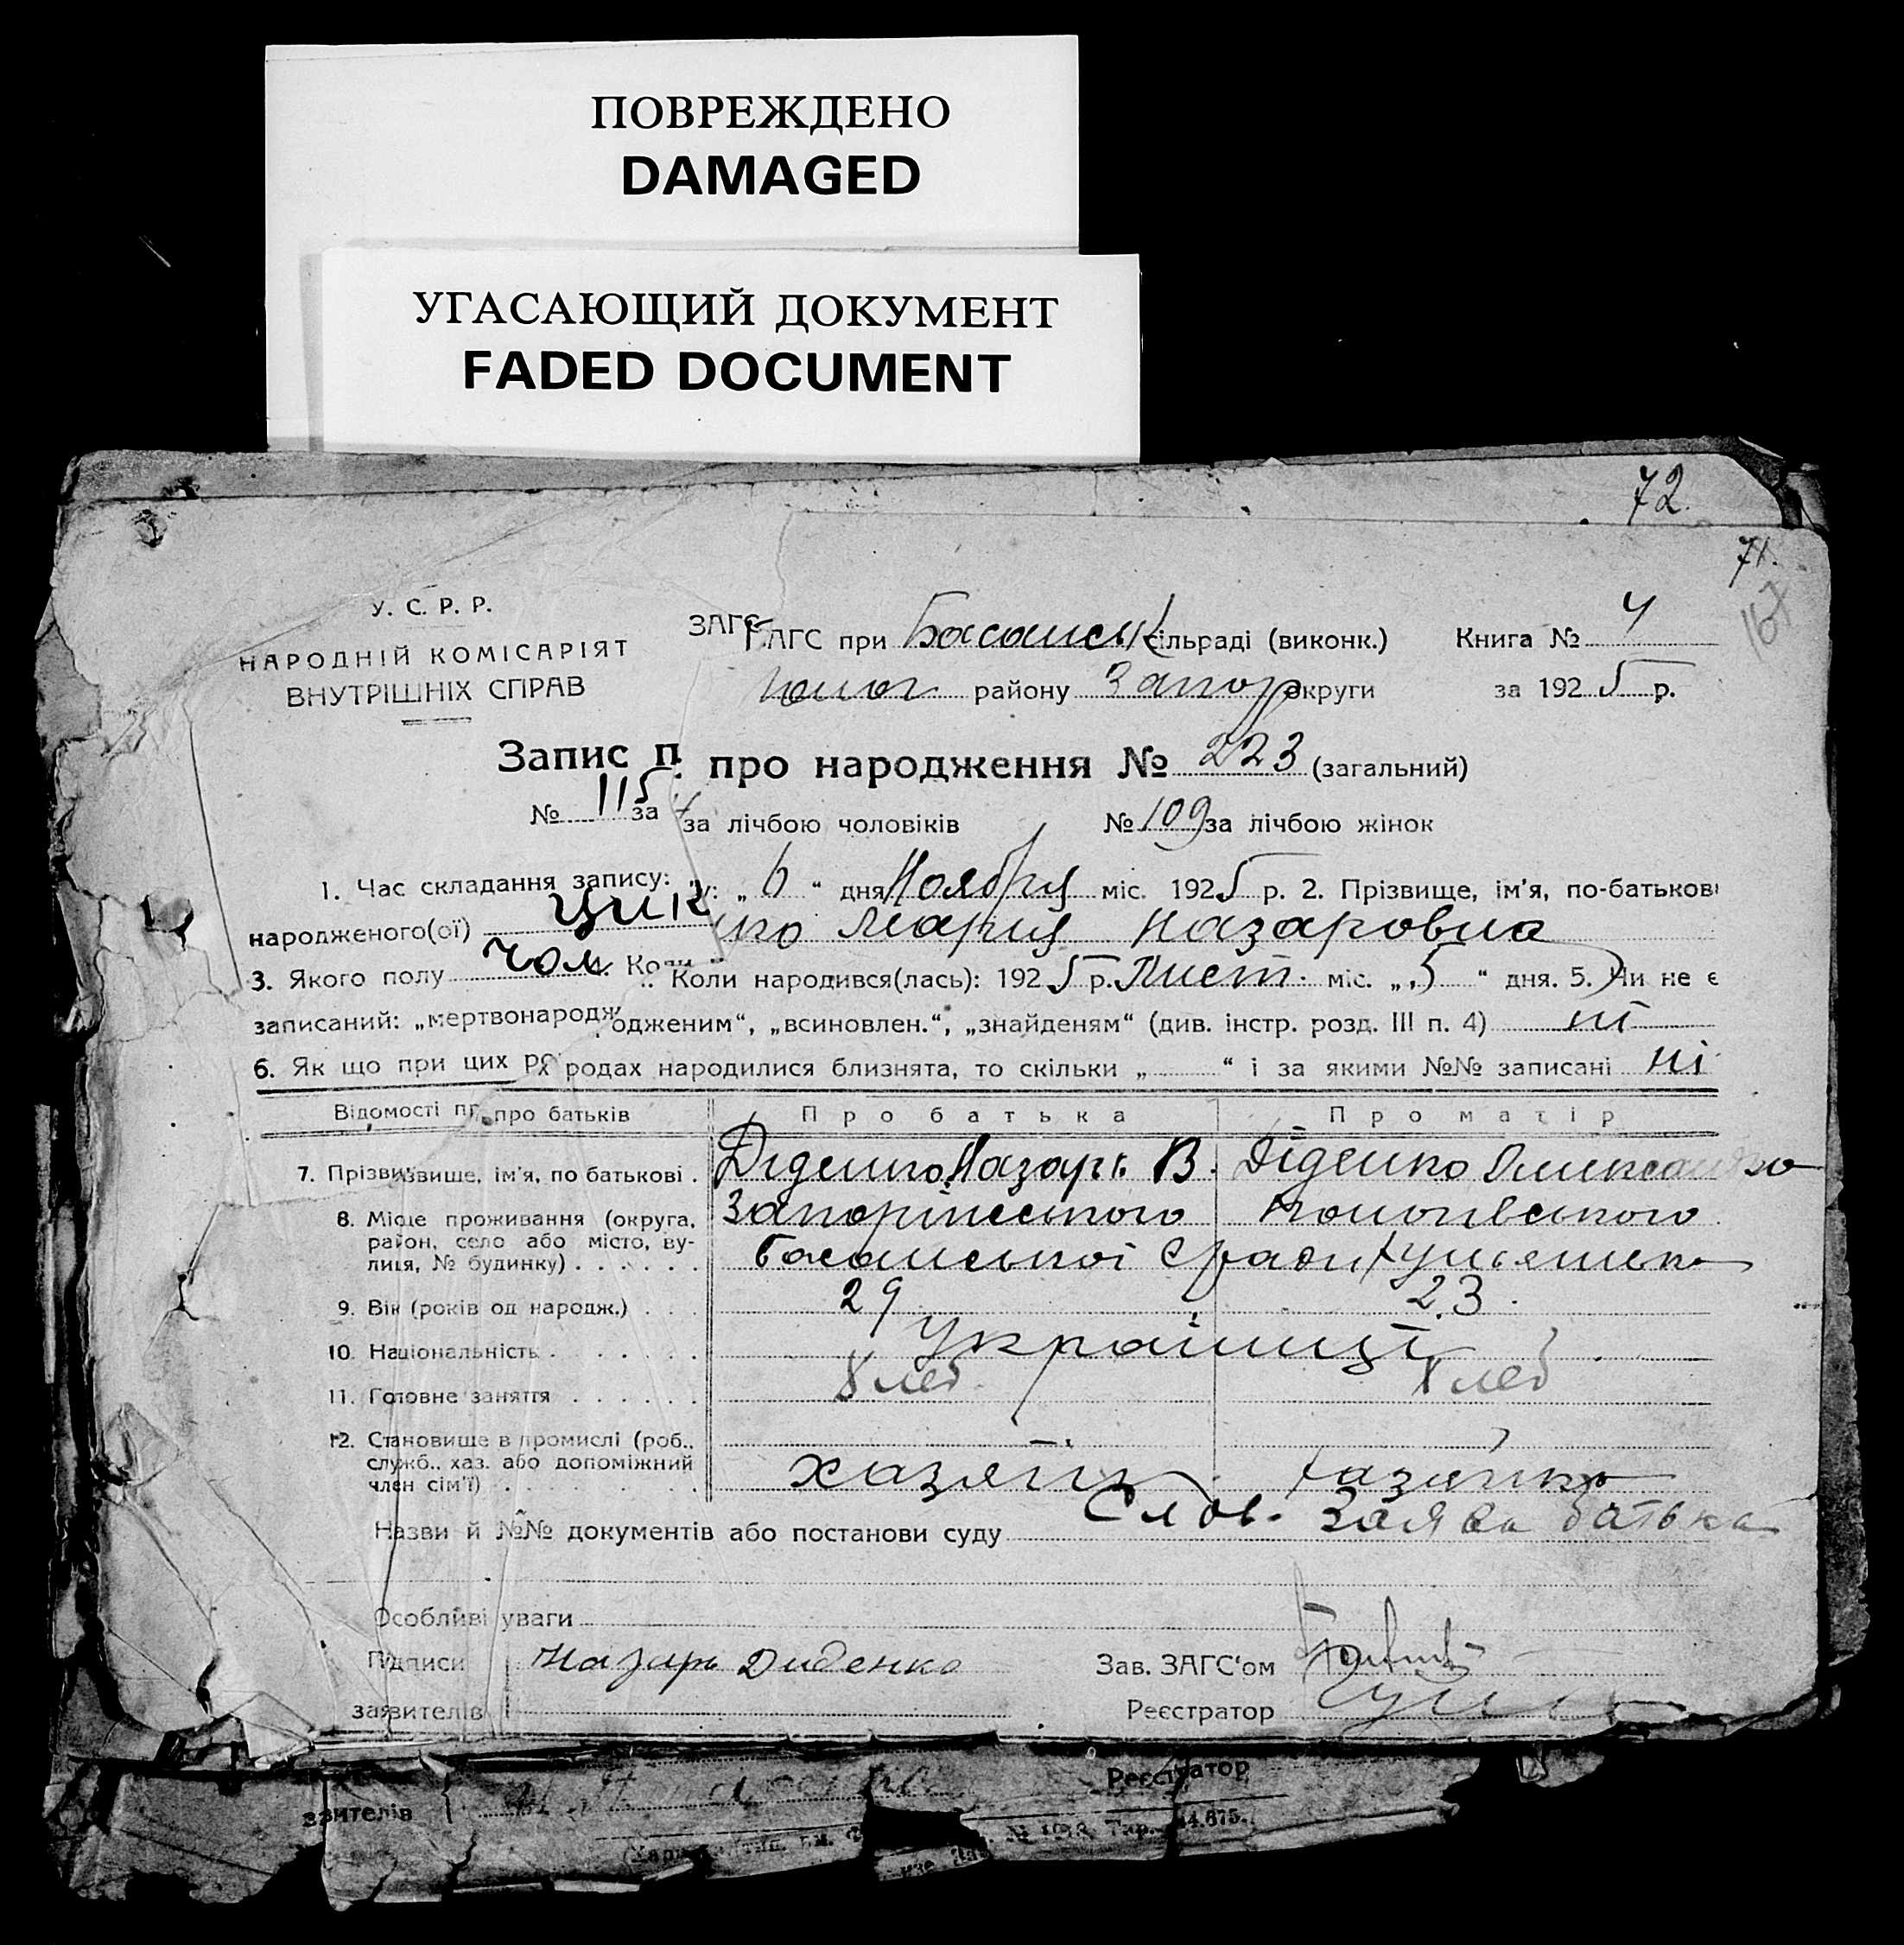 ПОВРЕЖДЕНО
DAMAGED
УГАСАЮЩИЙ ДОКУМЕНТ
FADED DOCUMENT
72.
71.
167
У. С. Р. Р.
НАРОДНІЙ КОМІСАРІЯТ
ВНУТРІШНІХ СПРАВ
ЗАГС АГС при Басанськ сільраді (виконк.) Книга № 4
району Запор округи за 1925 р.
Запис п про народження № 223 (загальний)
№ 115 за за лічбою чоловіків № 109 за лічбою жінок
1. Час складання запису: у: „ 6 “ дня Ноября міс. 1925 р. 2. Прізвище, ім'я, по-батькові
народженого(ої) Цик нко Мария Назаровна
3. Якого полу чол. Коли Коли народився(лась): 1925 р. Лист. міс. „ 5 “ дня. 5. Чи не є
записаний: „мертвонародж одженим“, „всиновлен.“, „знайденям“ (див. інстр. розд. III п. 4) ні
6. Як що при цих ро родах народилися близнята, то скільки „ “ і за якими №№ записані ні
Відомості пр про батьків Про батька Про матір
7. Прізви звише, ім'я, по батькові . Діденко Назарь В. Діденко Олександ
8. Місце проживання (округа, Запоріжського Пологівського
район, село або місто, ву-
лиця, № будинку) . . . . . . Басанської с ради
9. Вік (років од народж.) . . . 29 23
10. Національність . . . . . . . українці
11. Головне заняття . . . . . . Хлеб Хлеб
12. Становище в промислі (роб.,
служб., хаз. або допоміжний
член сім'ї) . . . . . . . . хазяїн хазяйка
Назви й №№ документів або постанови суду Слов. Заява батька
Особливі уваги
Підписи Назарь Диденко Зав. ЗАГС'ом
заявителів Реєстратор
Реєстратор
звителів